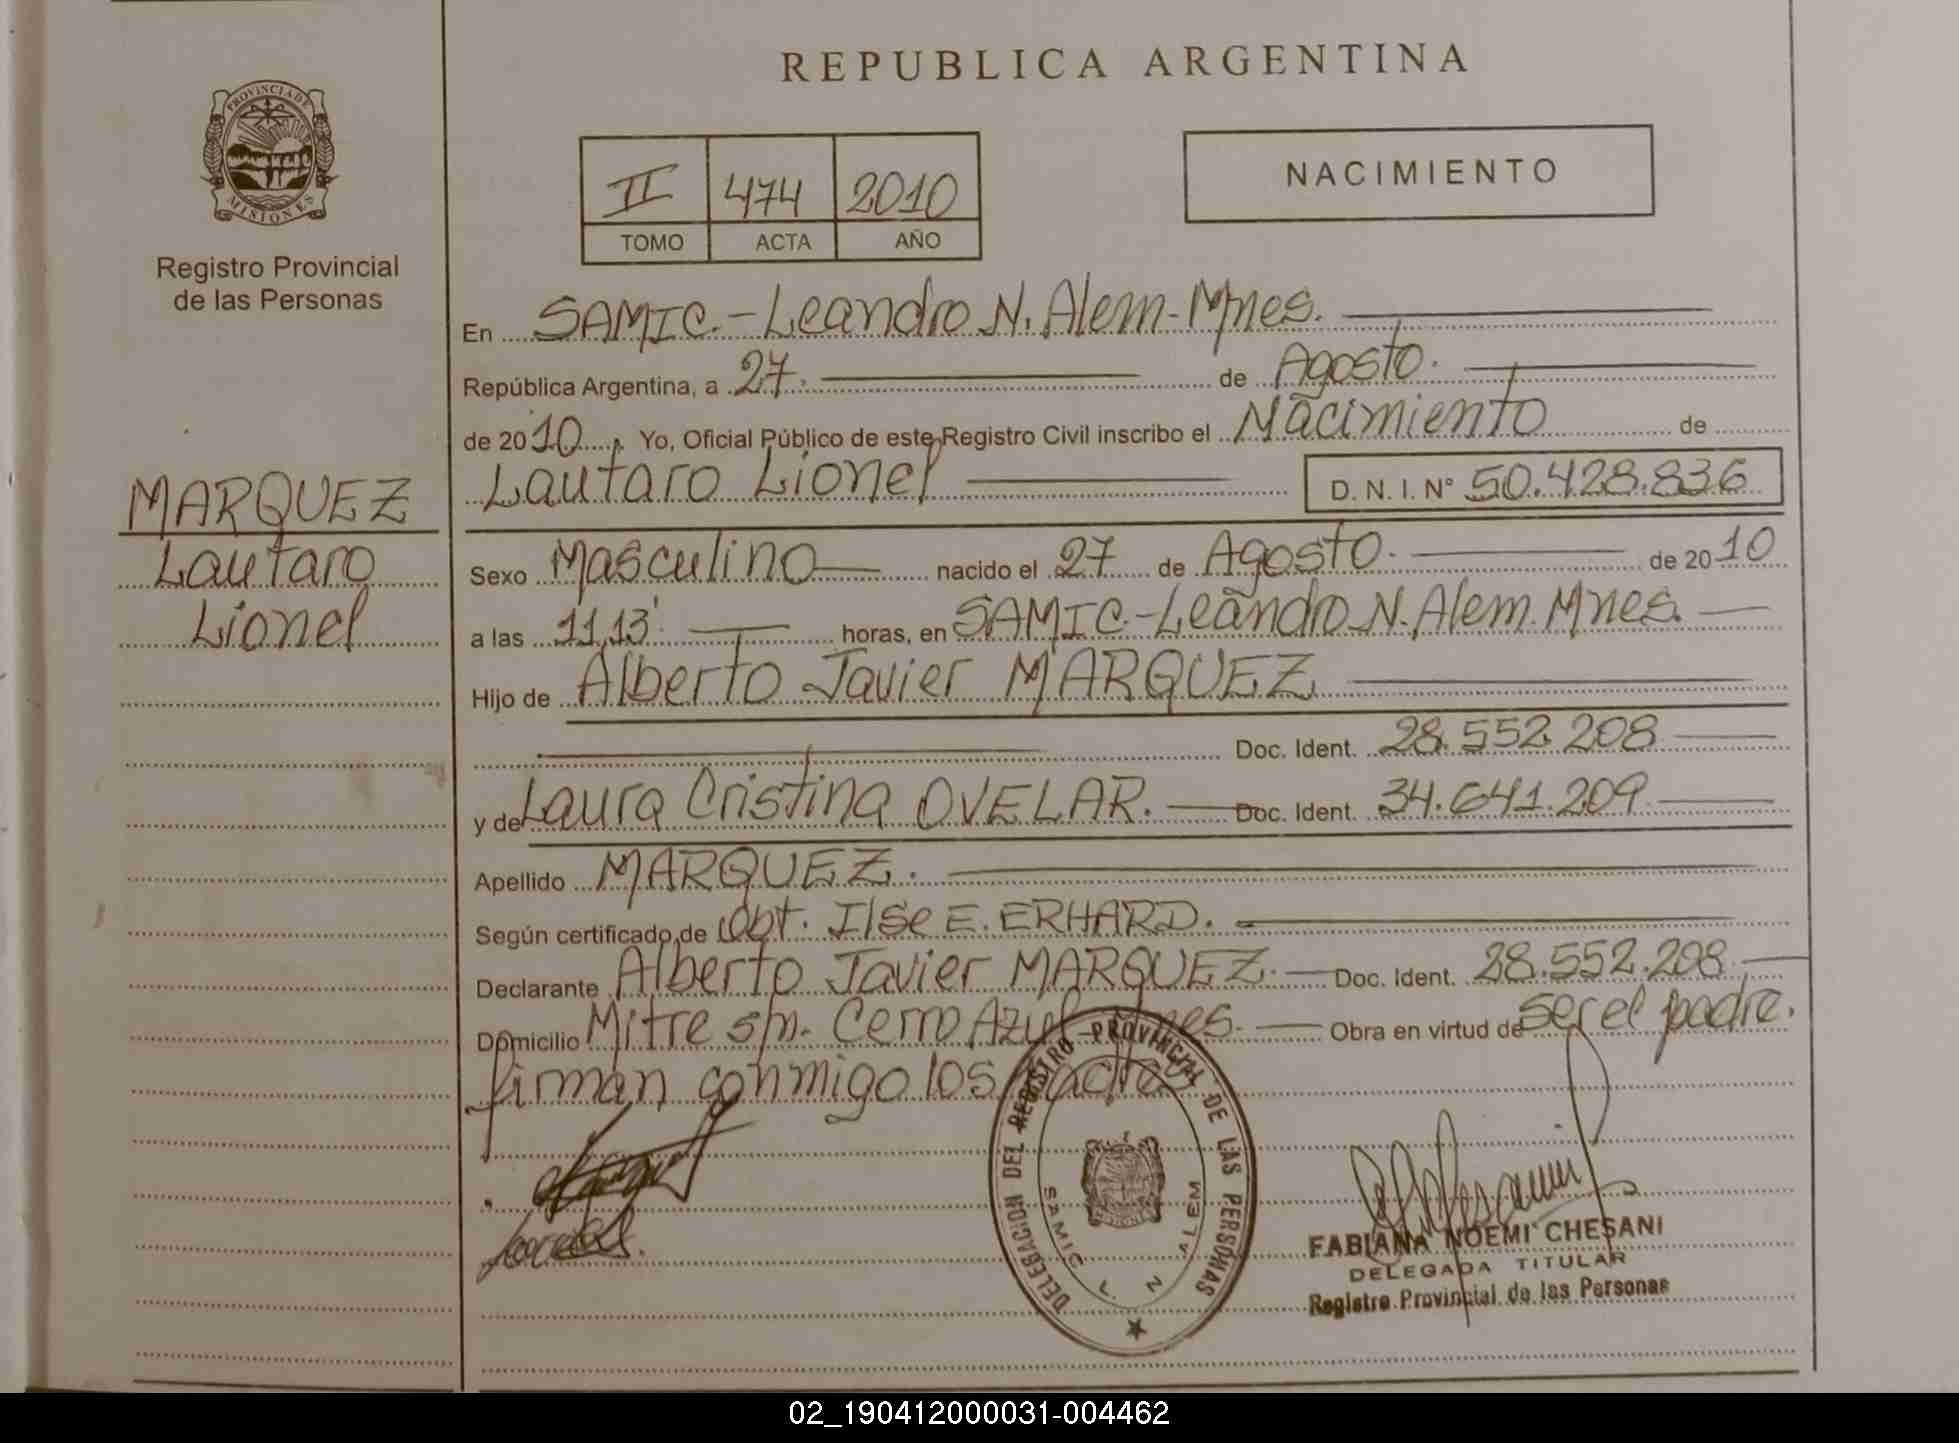 REPUBLICA ARGENTINA
PROVINCIA DE
MISIONES
Registro Provincial
de las Personas
II 474 2010
TOMO ACTA AÑO
NACIMIENTO
En SAMIC.-Leandro N. Alem-Mnes.
República Argentina, a 27. de Agosto.
de 2010. Yo, Oficial Público de este Registro Civil inscribo el Nacimiento de
Lautaro Lionel D. N. I. N° 50.428.836
MARQUEZ
Lautaro
Lionel
Sexo Masculino nacido el 27 de Agosto. de 2010
a las 11,13' horas, en SAMIC-Leandro N. Alem. Mnes.
Hijo de Alberto Javier MARQUEZ
Doc. Ident. 28.552.208
y de Laura Cristina OVELAR. Doc. Ident. 34.641.209
Apellido MARQUEZ.
Según certificado de Obt. Ilse E. ERHARD.
Declarante Alberto Javier MARQUEZ. Doc. Ident. 28.552.208
Domicilio Mitre s/n. Cerro Azul Mnes. Obra en virtud de ser el padre.
firman conmigo los
DELEGACION DEL REGISTRO PROVINCIAL DE LAS PERSONAS
SAMIC L. N. ALEM
FABIANA NOEMI CHESANI
DELEGADA TITULAR
Registro Provincial de las Personas
02_190412000031-004462